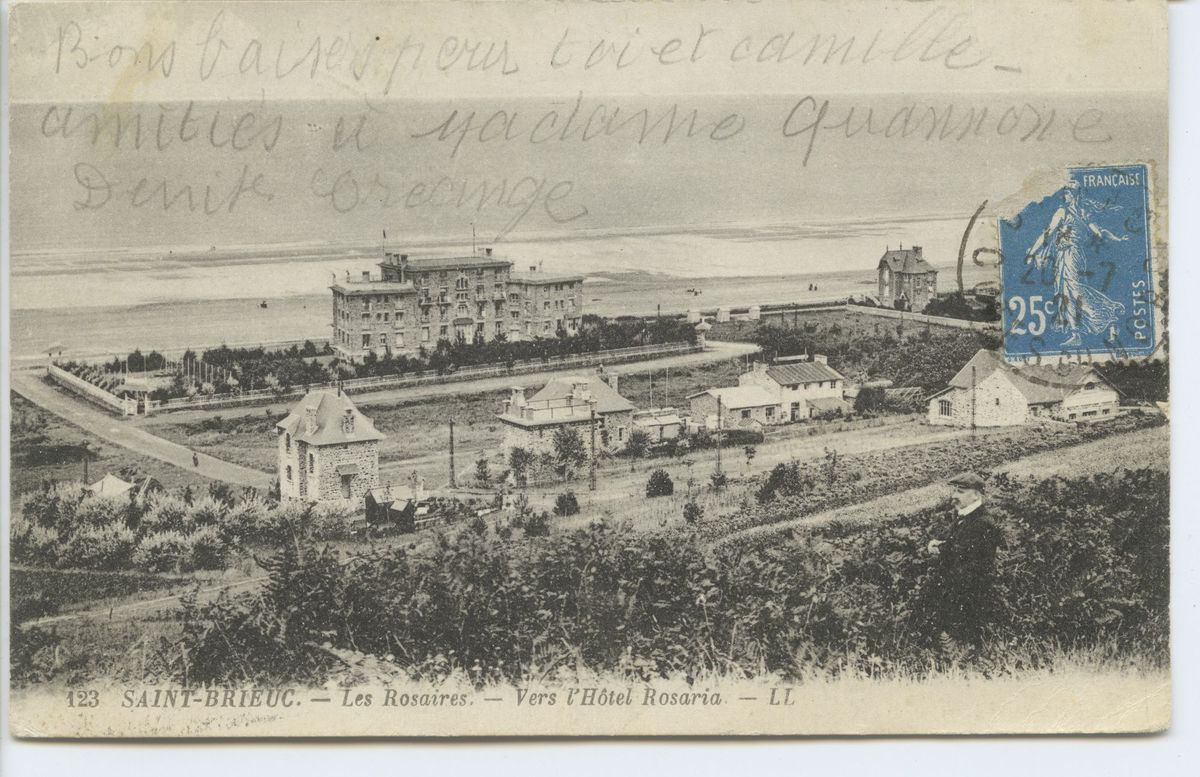 Bons baisers pour toi et camille
amitiés à Madame Quannone
Denise
FRANÇAISE
25c
POSTES
20 -7
21
123 SAINT-BRIEUC. — Les Rosaires. — Vers l'Hôtel Rosaria. — LL